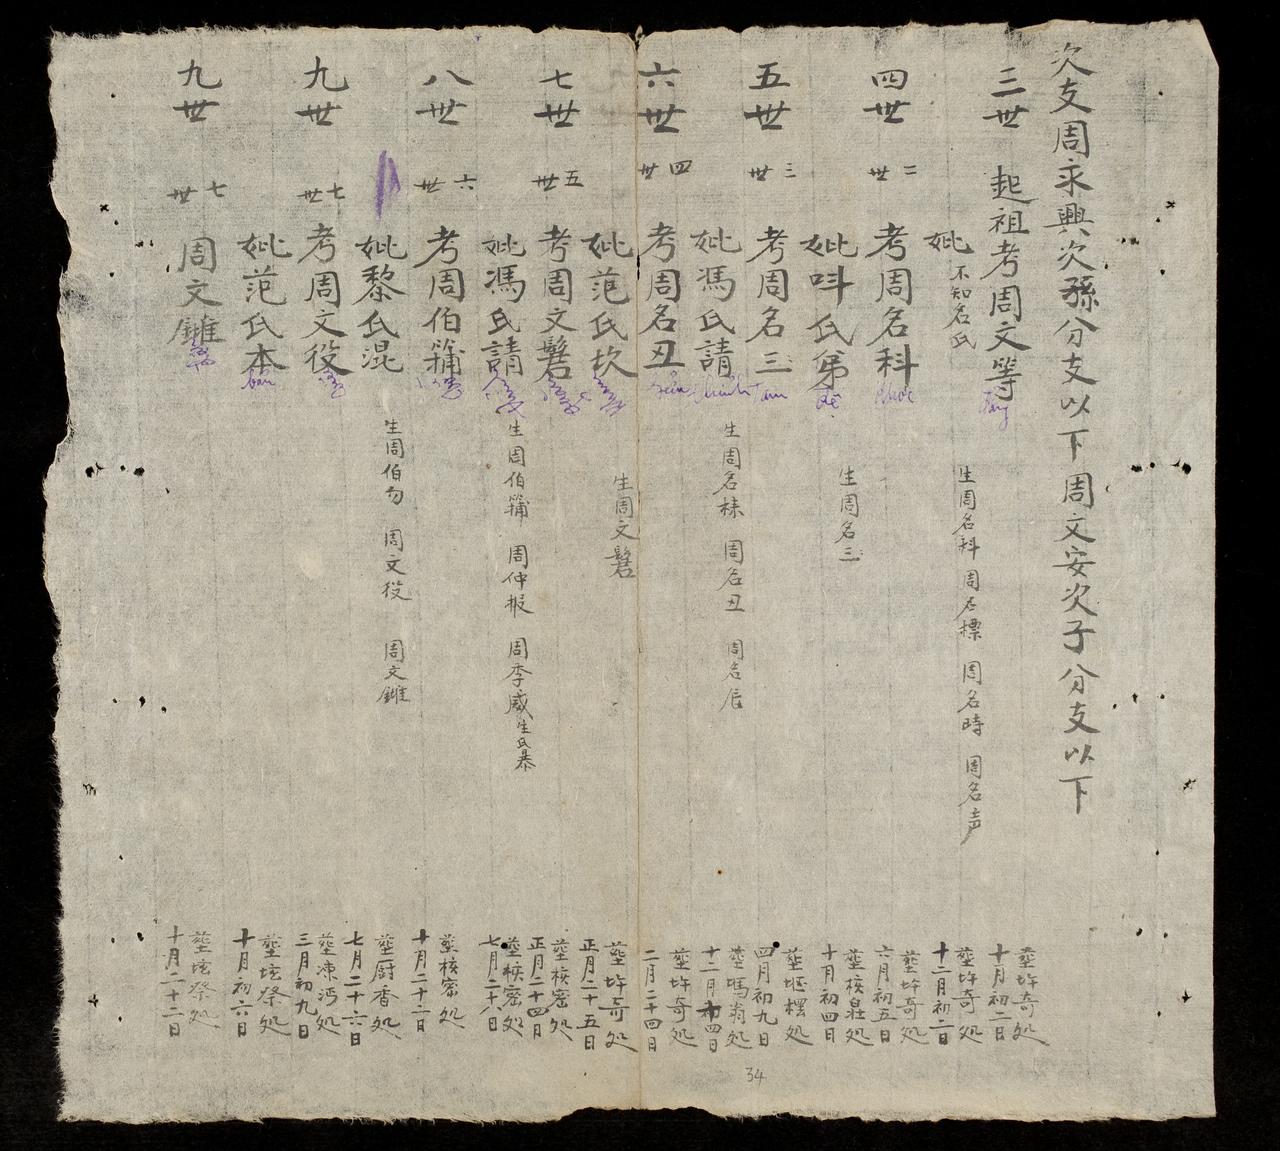 次支周永興次孫分支以下周文安次子分支以下
三世 起祖考周文等
Đẳng
妣不知名氏
生周名科 周名標 周名時 周名声
塟圬奇処
十月初二日
塟圬奇処
十二月初二日
四世
二世
考周名科
Khoa
妣呌氏弟
Đệ
生周名三
塟圬奇処
六月初五日
塟核生処
十月初四日
五世
三世
考周名三
Tam
妣馮氏請
Thỉnh
生周名秣 周名丑 周名辰
塟堰檡処
四月初九日
塟塢翁処
十二月十四日
六世
四世
考周名丑
妣范氏坎
生周文髫
塟圬奇処
二月二十四日
塟圬奇処
正月二十五日
七世
五世
考周文髫
妣馮氏請
生周伯簘 周仲报 周季威 生氏暴
塟核密処
正月二十四日
塟核密処
七月二十八日
八世
六世
考周伯簘
妣黎氏混
生周伯勿 周文役 周文雝
塟核密処
十月二十二日
塟厨香処
七月二十六日
九世
七世
考周文役
妣范氏本
bản
塟凍沔処
三月初九日
塟垓祭処
十月初六日
九世
七世
周文雝
塟垓祭処
十月二十二日
34